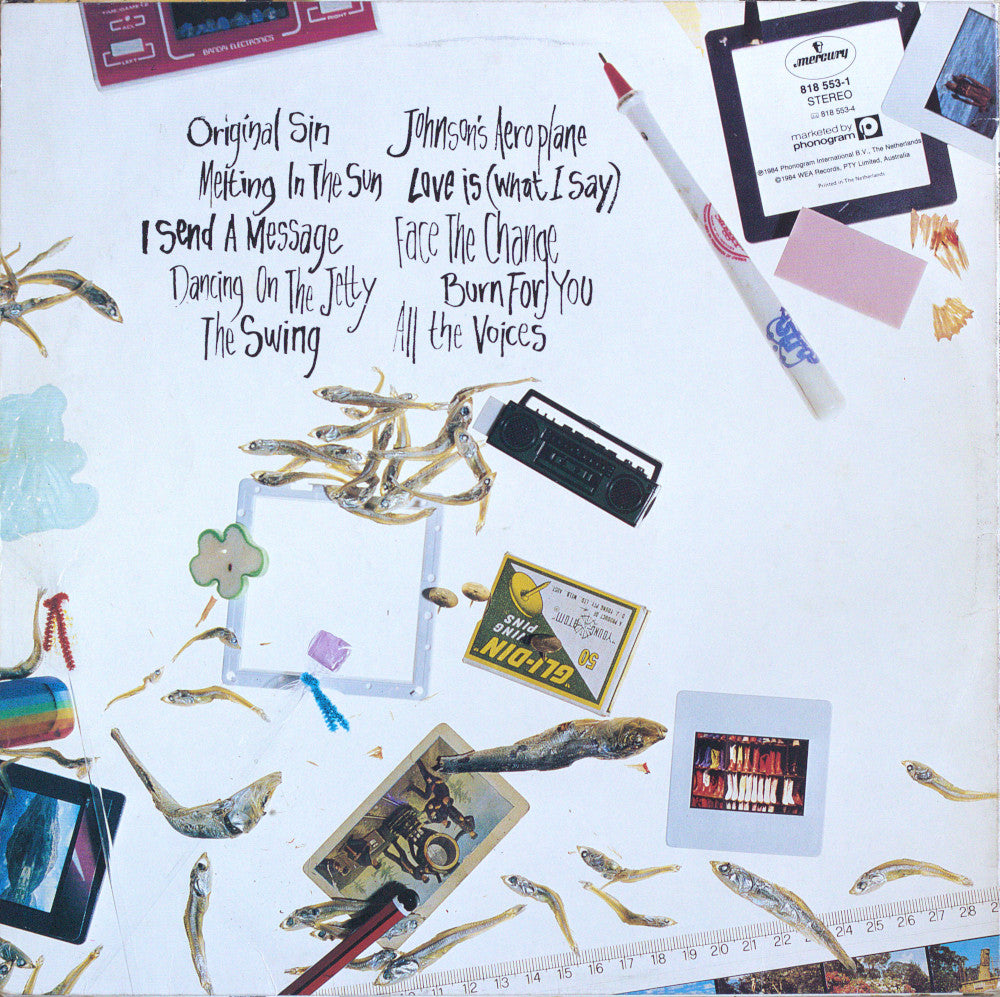 TIME/GAME 1.2
ACL
LEFT
RIGHT
BANDAI ELECTRONICS
Original Sin
Melting In The Sun
I Send A Message
Dancing On The Jetty
The Swing
Johnson's Aeroplane
Love is (what I say)
Face The Change
Burn For You
All the Voices
mercury
818 553-1
STEREO
818 553-4
marketed by
phonogram
℗1984 Phonogram International B.V., The Netherlands
©1984 WEA Records, PTY Limited, Australia
Printed in The Netherlands
"GLI-DIN"
ING
PINS
50
"YOUNG ATOM"
A PRODUCT OF
11 12 13 14 15 16 17 18 19 20 21 22 23 24 25 26 27 28 2